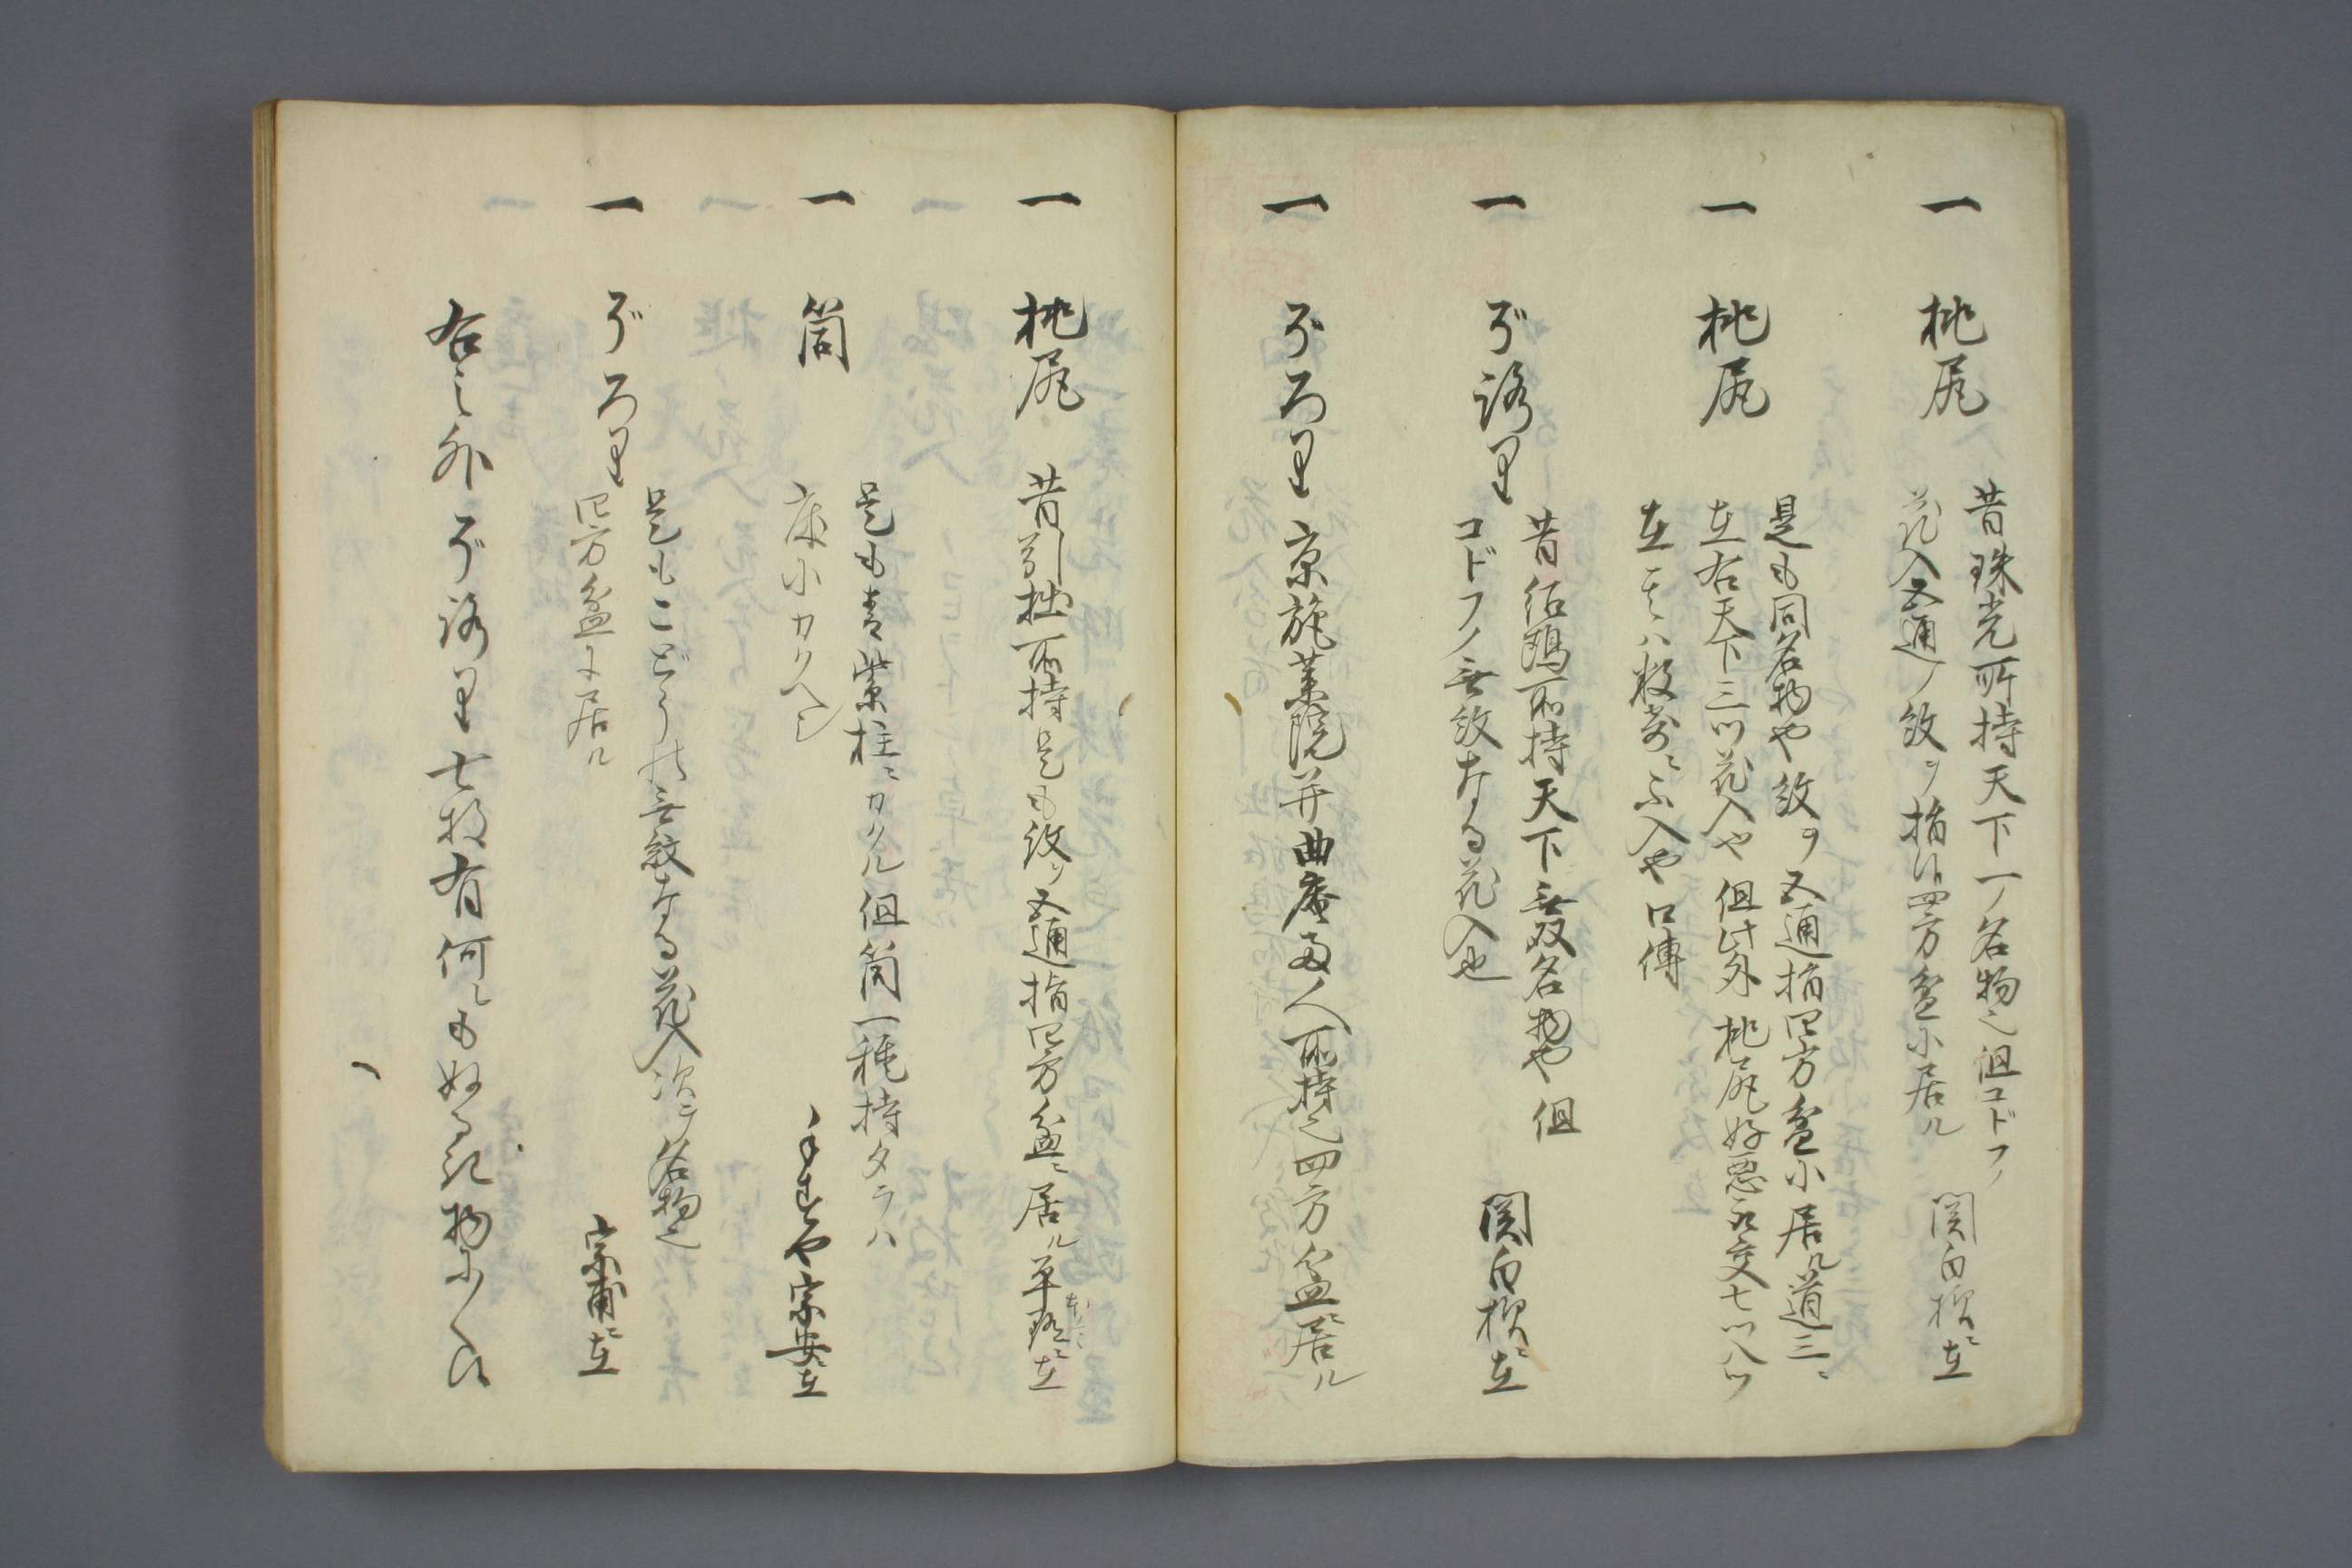 一 桃尻
昔珠光所持天下一ノ名物也但コドフノ
花入五通ノ紋ヲ指ハ四方盆小居ル
関白様ニ在
一 桃尻
是も同名物や紋ヲ五通指四方盆小居ル道三ニ
在右天下三ツ花入や但此外桃尻好悪取交七ツ八ツ
在ハ数寄ニ不入や口傳
一 ぞ路里
昔紹鴎所持天下無双名物や但
コドフノ無紋なる花入也
関白様ニ在
一 そろ里
京施薬院并曲庵両人所持也四方盆ニ居ル
一 桃尻
昔引拙所持是も紋ヲ五通指四方盆ニ居ル草部ニ在
一 筒
是も青紫柱ニカクル但筒一種持タラハ
床小カクヘシ
や宗安ニ在
一 ぞろ里
是もこどうの無紋なる花入次テ名物也
四方盆に居ル
宗甫ニ在
右之外ぞ路里七振有何も